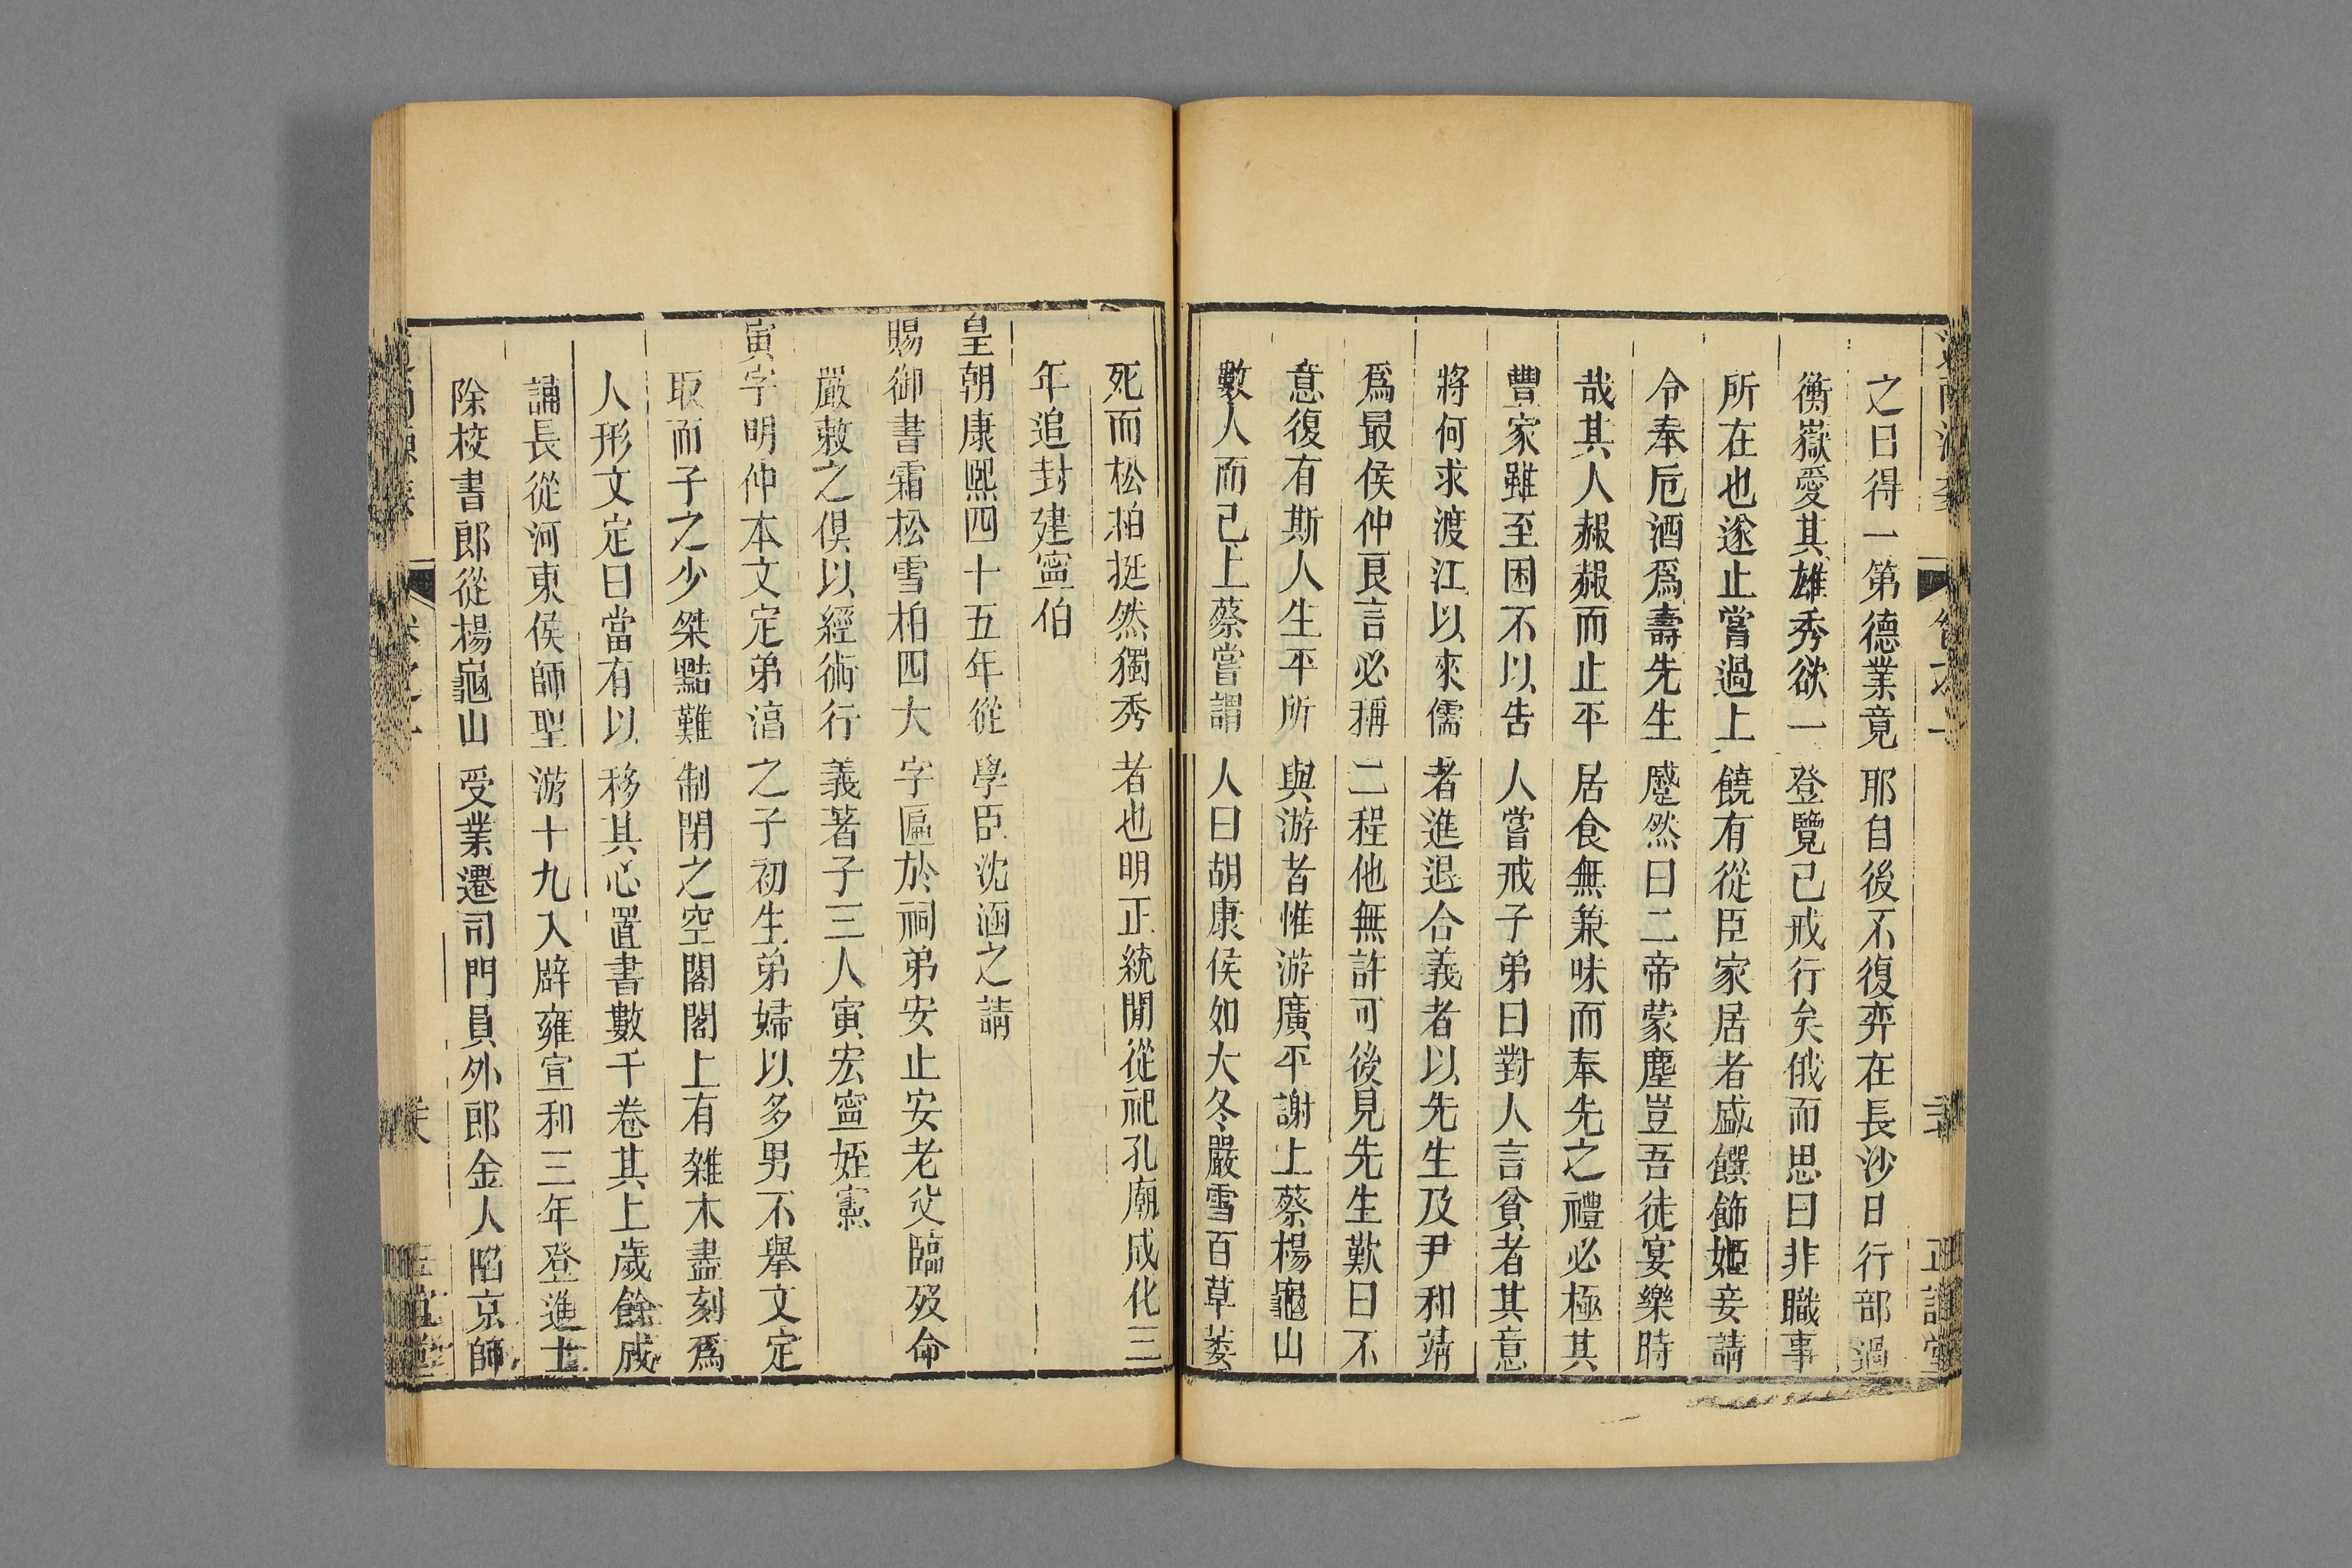 之曰得一第德業竟耶自後不復弈在長沙日行部過
衡嶽愛其雄秀欲一登覽已戒行矣俄而思曰非職事
所在也遂止嘗過上饒有從臣家居者盛饌飾姬妾請
令奉卮酒爲壽先生蹙然曰二帝蒙塵豈吾徒宴樂時
哉其人赧赧而止平居食無兼味而奉先之禮必極其
豐家雖至困不以告人嘗戒子弟曰對人言貧者其意
將何求渡江以來儒者進退合義者以先生及尹和靖
爲最侯仲良言必稱二程他無許可後見先生歎曰不
意復有斯人生平所與游者惟游廣平謝上蔡楊龜山
數人而已上蔡嘗謂人曰胡康侯如大冬嚴雪百草萎
死而松栢挺然獨秀者也明正統閒從祀孔廟成化三
年追封建寧伯
皇朝康熙四十五年從學臣沈涵之請
賜御書霜松雪柏四大字匾於祠弟安止安老父臨歿命
嚴敕之俱以經術行義著子三人寅宏寧姪憲
寅字明仲本文定弟湻之子初生弟婦以多男不舉文定
取而子之少桀黠難制閉之空閣閣上有雜木盡刻爲
人形文定曰當有以移其心置書數千卷其上歲餘成
誦長從河東侯師聖游十九入辟雍宣和三年登進士
除校書郎從楊龜山受業遷司門員外郎金人陷京師